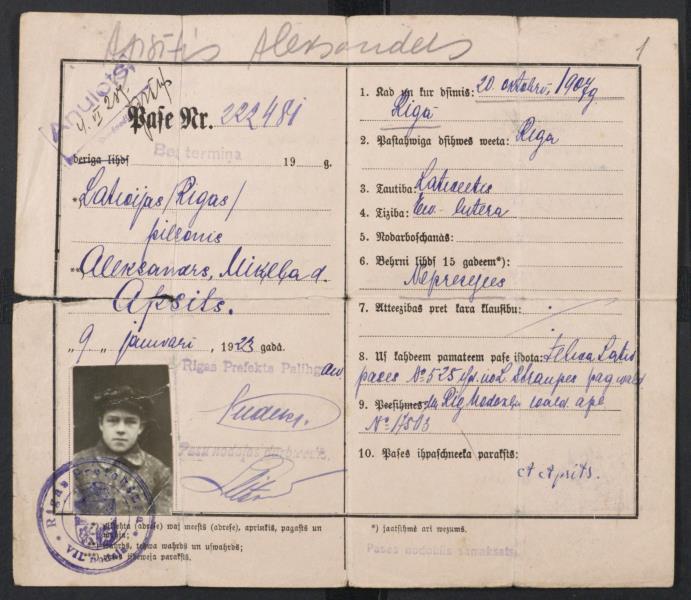 Apsītis Aleksanders
1
Anulēts
Pase Nr. 222481
deriga lihds Bez termiņa 19 g.
*Latvijas/Rigas/
pilsonis
**Aleksandrs, Miķeļa d.
Apsits.
„9„ janvari 1923 gadā.
Rigas Prefekta Palihgs
Pasu nodaļas
Rigas Prefektura
VII
*) (adrese) waj meests (adrese), aprinkis, pagasts un
wahrds, tehwa wahrds un uswahrds;
paraksts.
1. Kad un kur dsimis: 20. oktobrī, 1907 g
Rīgā
2. Pastahwiga dsihwes weeta: Rīga
3. Tautiba: Latveetis
4. Tiziba: Ew. lutera
5. Nodarboschanās:
6. Behrni lihds 15 gadeem*):
Neprecejees
7. Atteezibas pret kara klausibu:
8. Us kahdeem pamateem pase isdota:
pases No 525 isd. no L. Straupes pag. wald.
9. Peesihmes:
No 17503
10. Pases ihpaschneeka paraksts:
A Apsits.
*) jaatsihmē ari wezums.
Pases nodoklis samaksats.